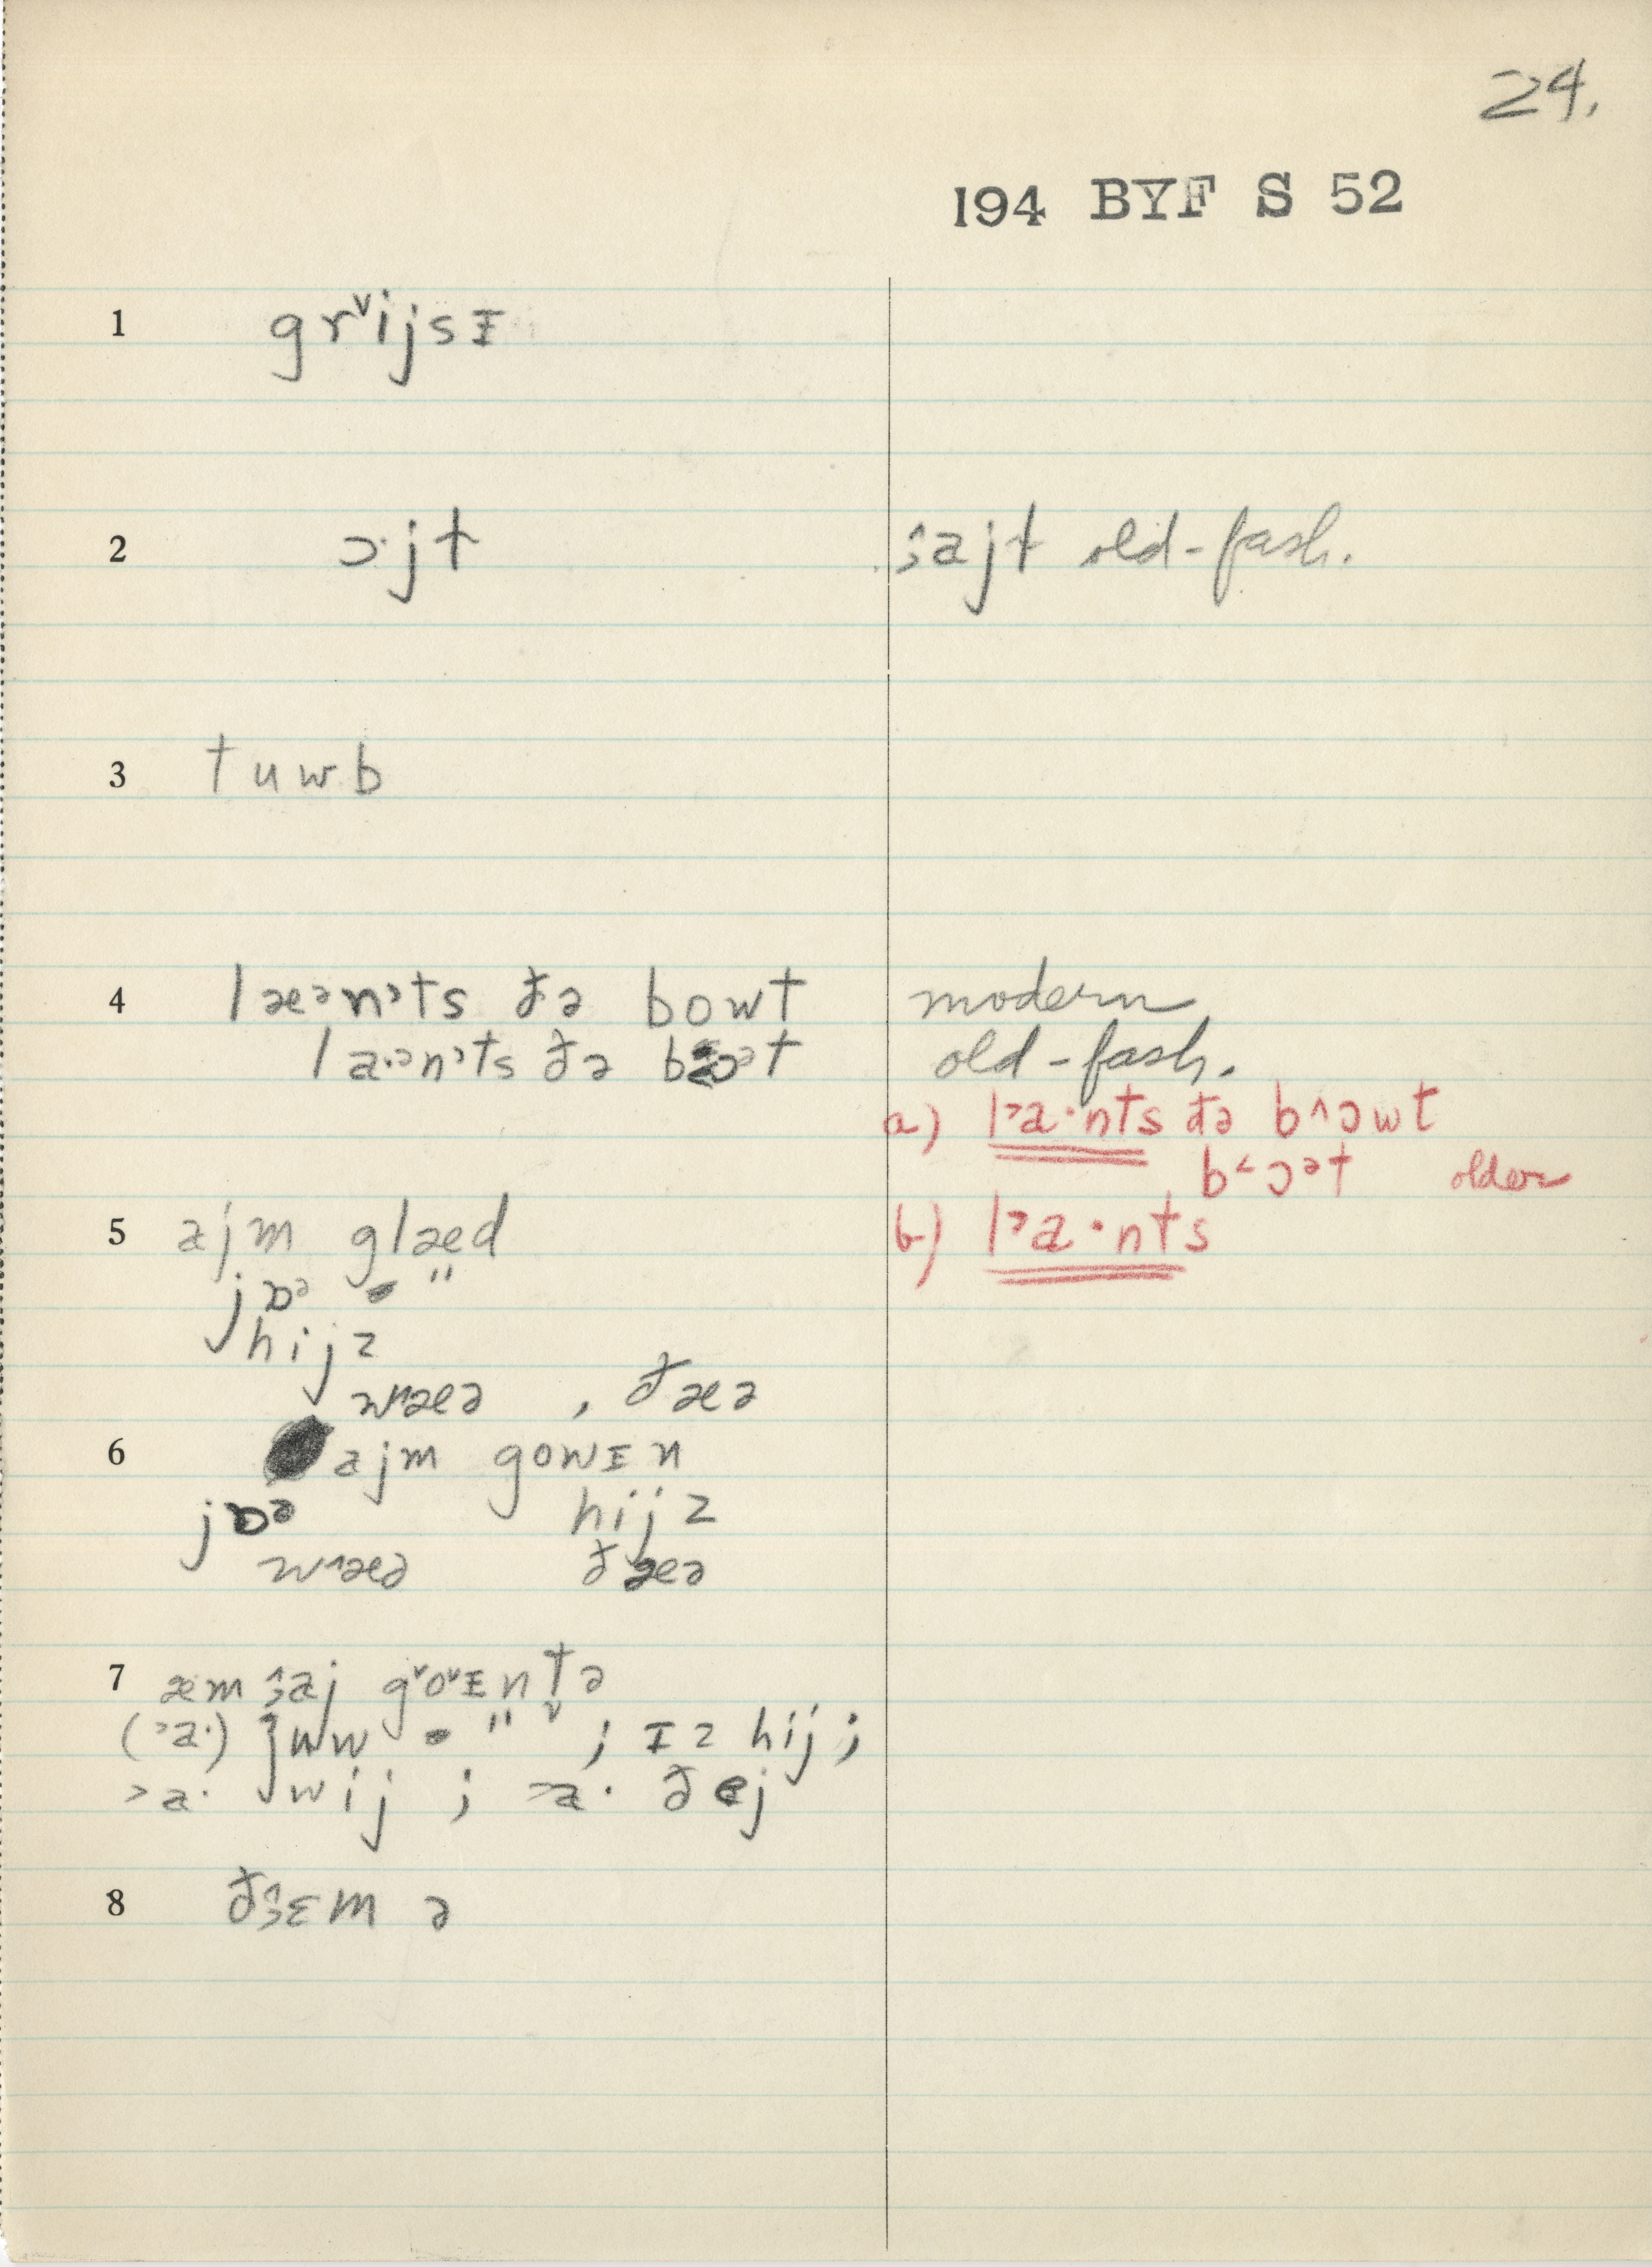 24.
194 BYF S 52
1 grᵛijsɪ
2 ɔ·jt ɜ̂ajt old-fash.
3 tuwb
4 læᵊn˒ts ðə bowt modern
la·ᵊn˒ts ðə old-fash.
a) l˃a·nts ðə b˄ɔwt
b˂ɔᵊt older
b) l˃a·nts
5 ajm glæd
jɒᵊ "
hijz
w˄æə , ðæə
6 ajm gowɪn
jɒᵊ hijz
w˄æə ðæə
7 æm ɜ̂aj gᵛoᵛɪntə
(˃a·) juw " ᵛ ; ɪz hij ;
˃a· wij ; ˃a· ðej
8 ðɜ̂ɛm ə